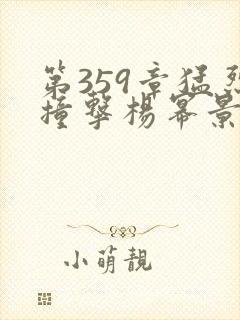 第359章猛烈
撞擊楊冪景
小萌靚